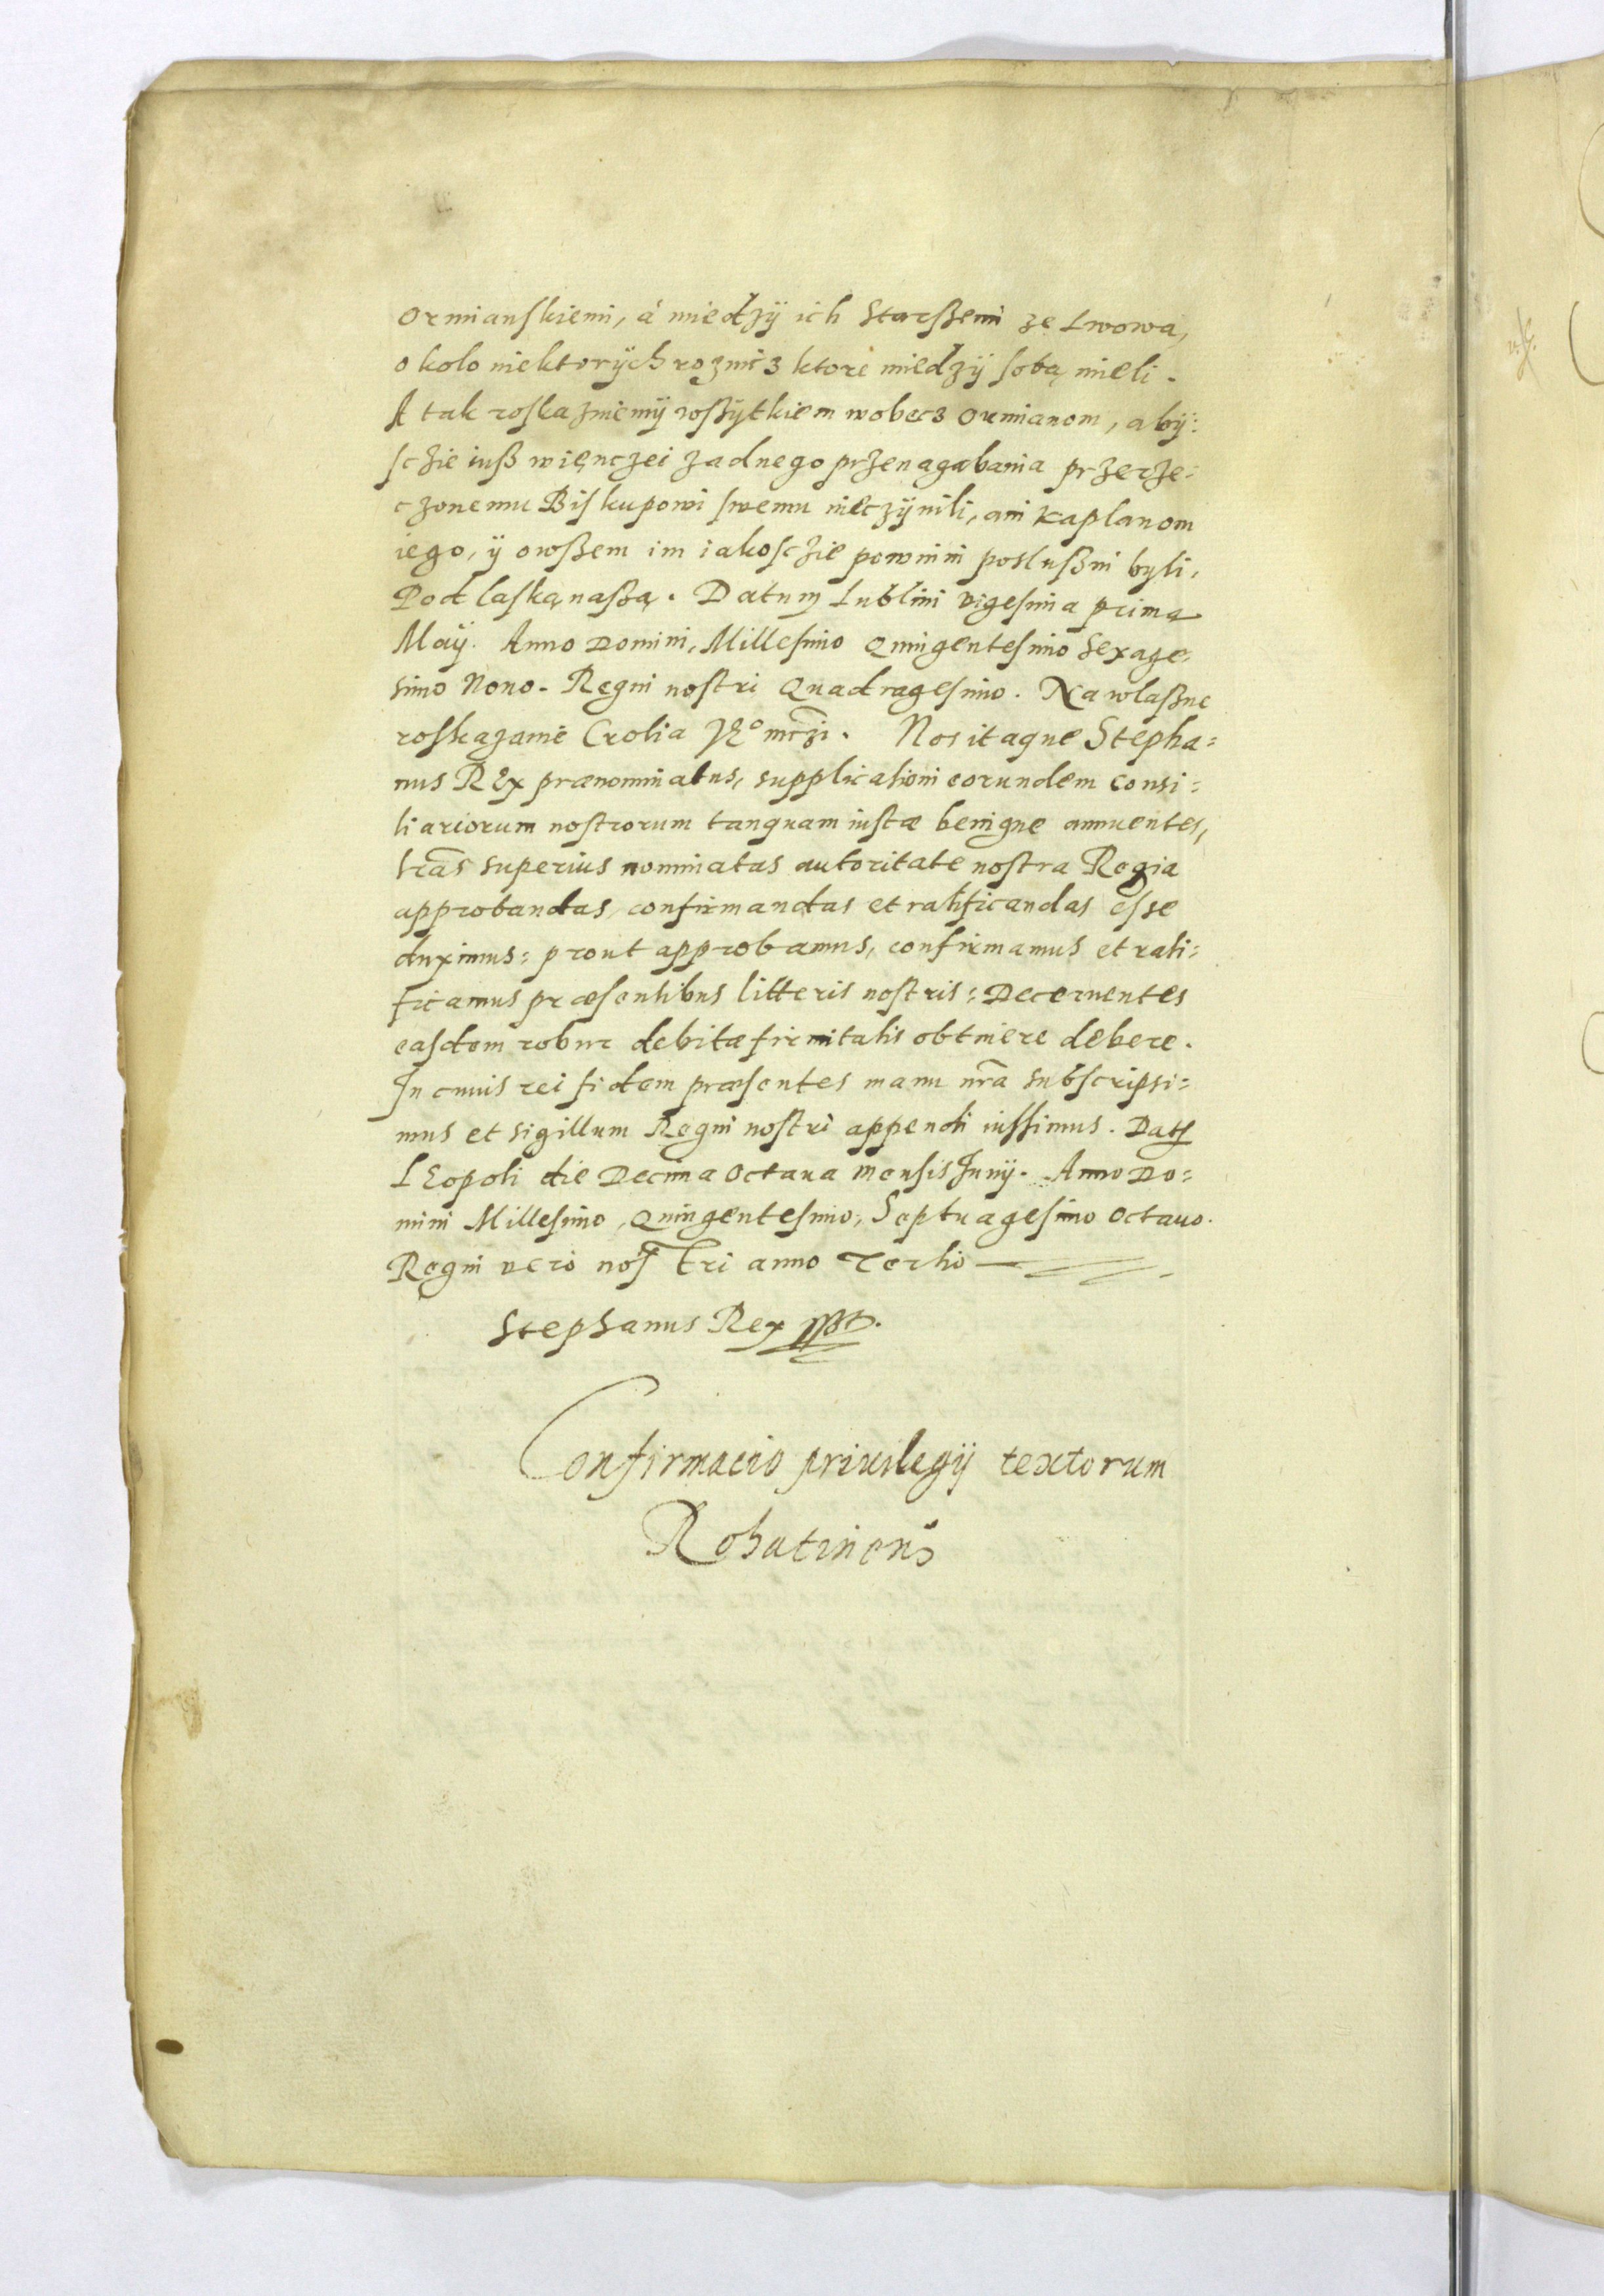 Ormianskiemi, á miedzÿ ich Starßemi ze Lwowa,
okolo niektorÿch roznicz ktore miedzÿ sobą mieli.
A tak roskazuiemÿ wßÿtkiem wobecz Ormianom, abÿ:
sczie iuß więnczei zadnego przenagabania przerze:
czonemu Biskupowi swemu nieczÿnili, ani Kaplanom
iego, ÿ owßem im iakosczie powinni poslußni byli,
Pod laską naßą. Datum Lublini vigesima prima
Maÿ. Anno Domini, Millesimo Quingentesimo Sexage,
simo Nono. Regni nostri Quadragesimo. Na wlaßne
roskazanie Crolia Je̊ mczi. Nos itaque Stepha:
nus REx prænominatus, supplicationi eorundem Consi:
liariorum nostrorum tanquam iustæ benigne annuentes,
lras superius nominatas autoritate nostra Regia
approbandas, confirmandas et ratificandas esse
duximus: prout approbamus, confirmamus et rati:
ficamus præsentibus litteris nostris: Decernentes
easdem robur debitæ firmitatis obtinere debere.
In cuius rei fidem præsentes manu nra subscripsi:
mus et sigillum Regni nostri appendi iussimus. Dat
LEopoli die Decima Octaua mensis Junÿ. Anno Do:
mini Millesimo, Quingentesimo, Septuagesimo Octauo.
Regni vero nostri anno Tertio
Stephanus Rex sst.
Confirmacio priuilegÿ textorum
Rohatinens